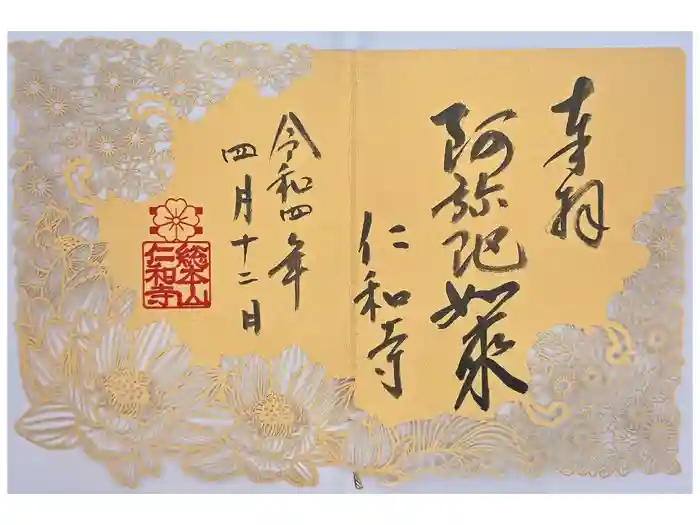 奉拝
阿弥陀如来
仁和寺
令和四年
四月十二日
総本山
仁和寺